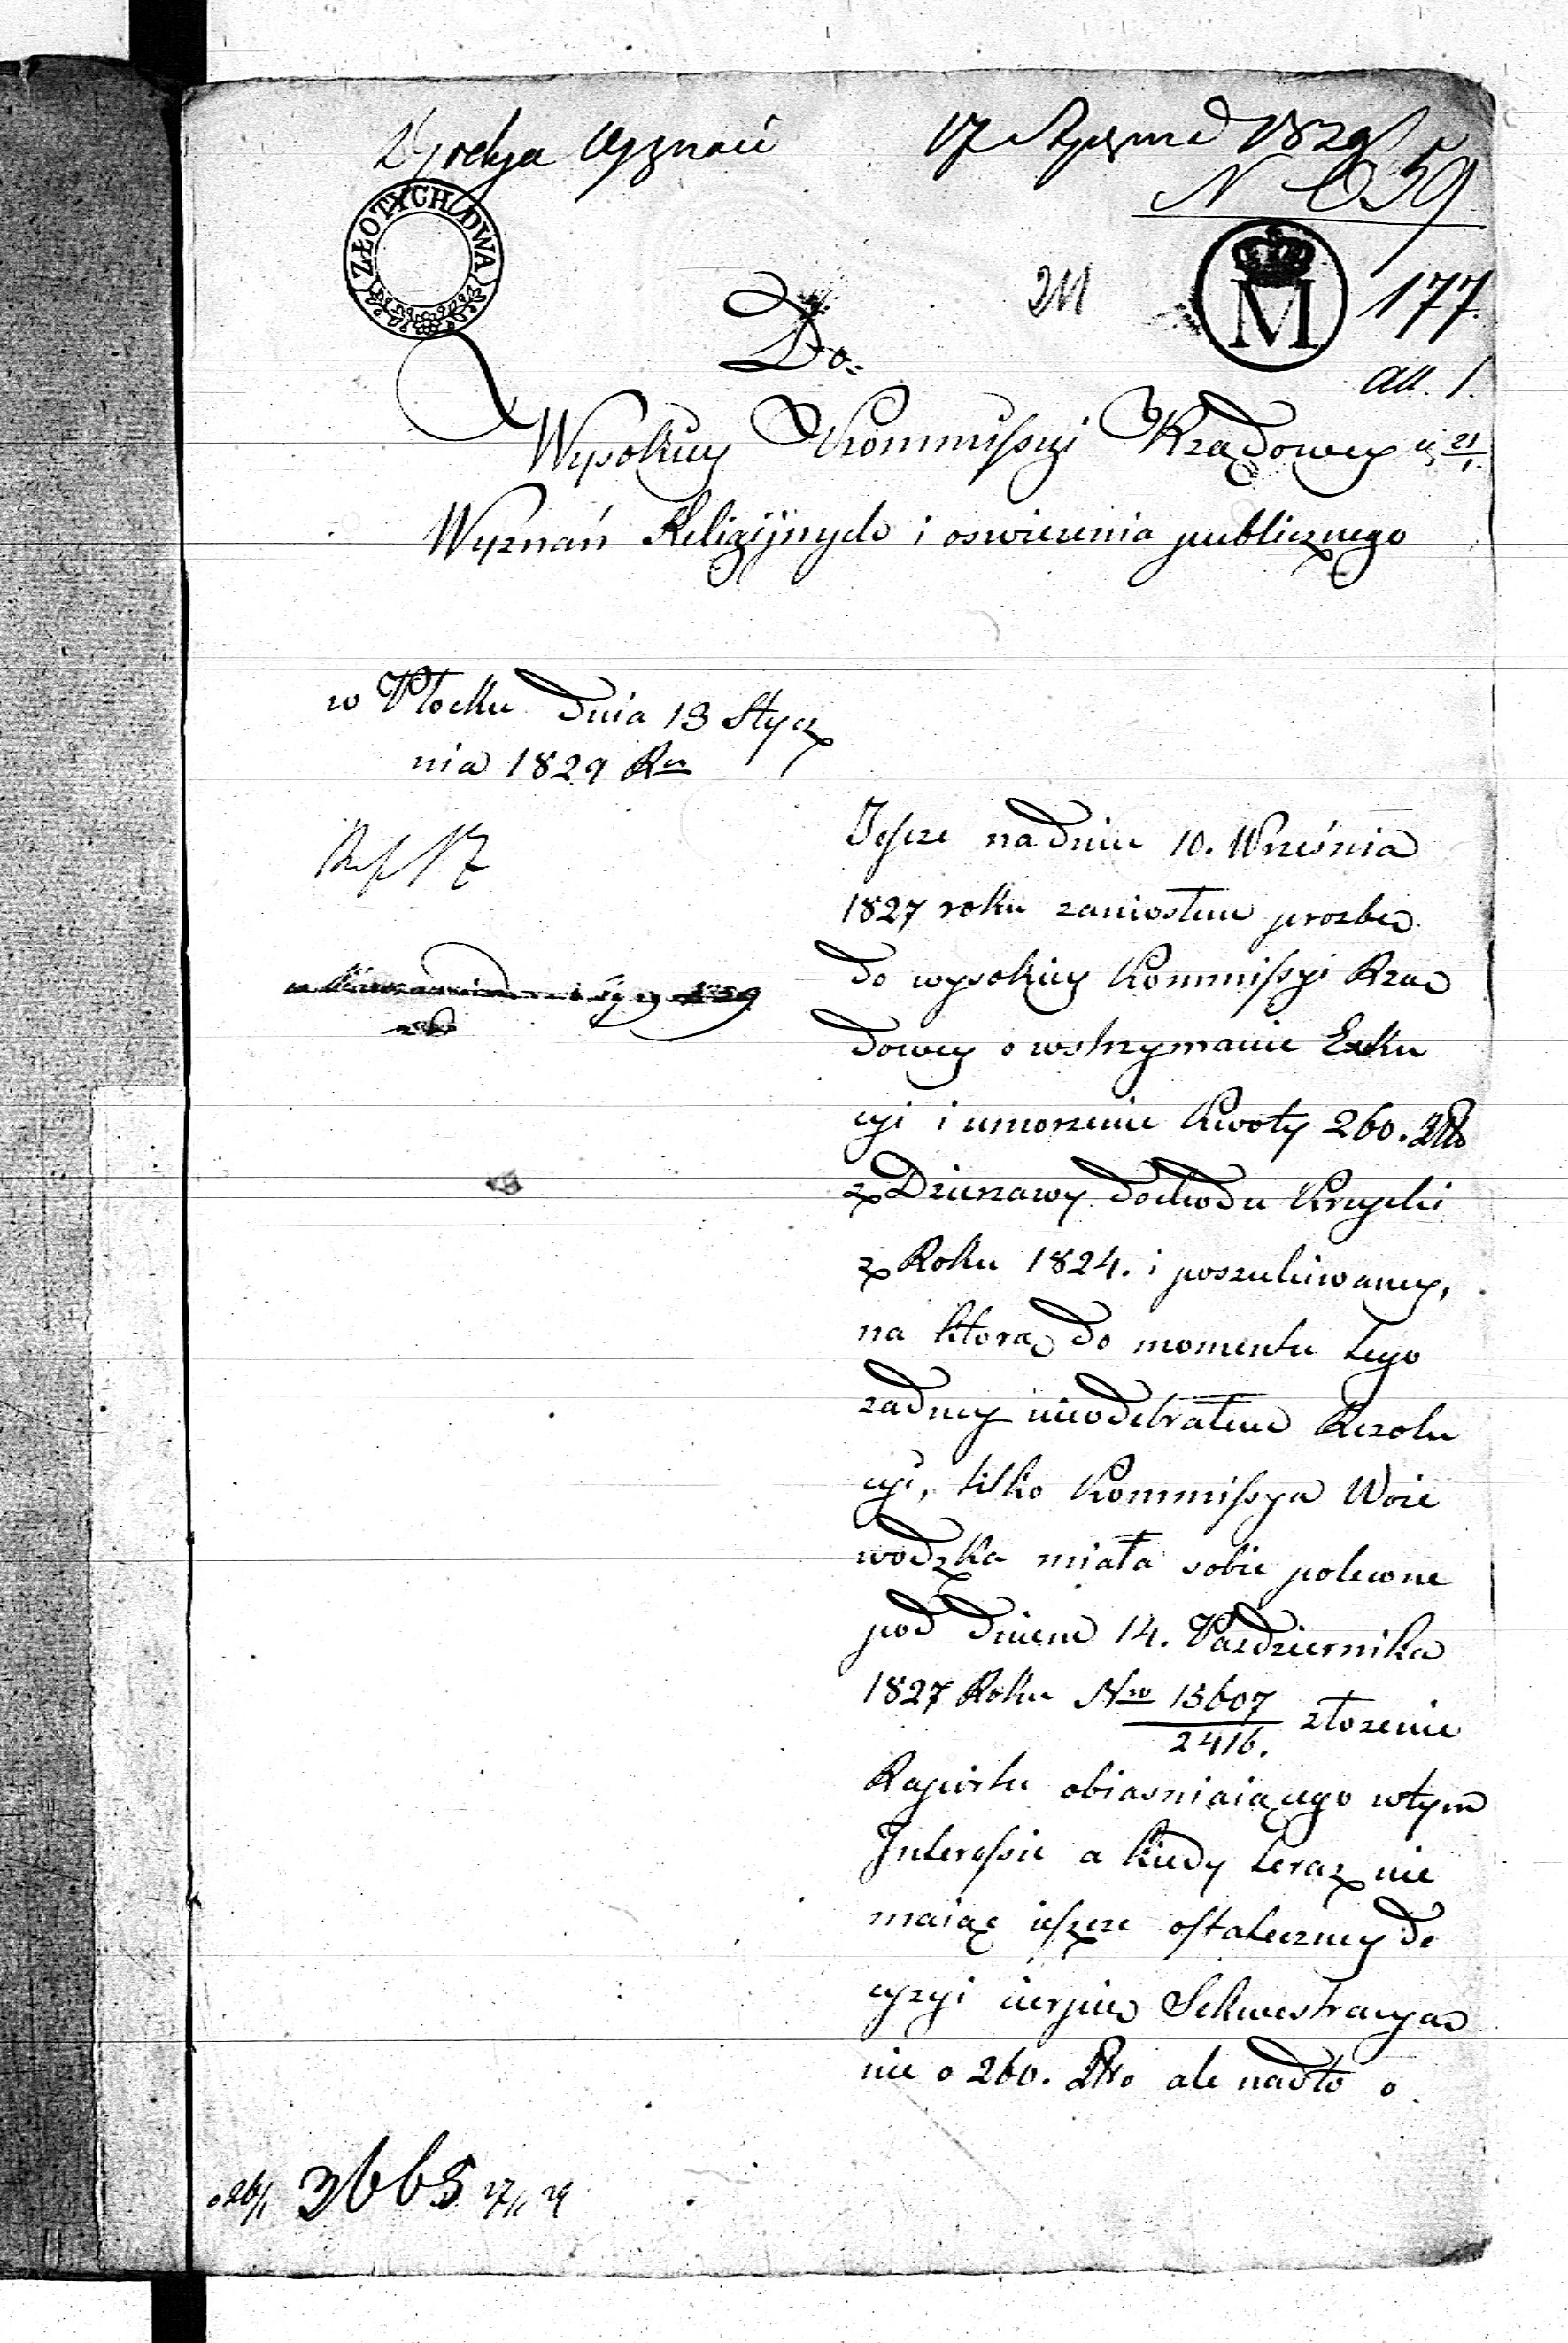 Dyrekcya Wyznań 17 Stycznia 1829
N 659
ZŁOTYCH DWA
211
M
177
Do:
all. 1.
Wysokiey Kommissyi Rządowey
21/1.
Wyznań Religijnych i oswiecenia publicznego
w Płocku dnia 13 Stycz
nia 1829 Ru
Jescze na dniu 10. Września
1827 roku zaniosłem prozbę
do wysokiey Kommissyi Rzą
dowey o wstrzymanie Exku
cyi i umorzenie Kwoty 260. Złło
z Dzierzawy dochodu Krupki
z Roku 1824. i poszukiwaney,
na ktorą do momentu tego
zadney nieodebrałem Rezolu
cyi, tilko Kommissya Woie
wodzka miała sobie polecone
pod dniem 14. Pazdziernika
1827 Roku Nro 15607/2416. złozenie
Raportu obiasniaiącego wtym
Interessie a kiedy teraz nie
maiąc ieszcze ostateczney de
cyzyi cierpię Sekwestracyą
nie o 260. Złło ale nadto o
26/1 3665 27/1 29